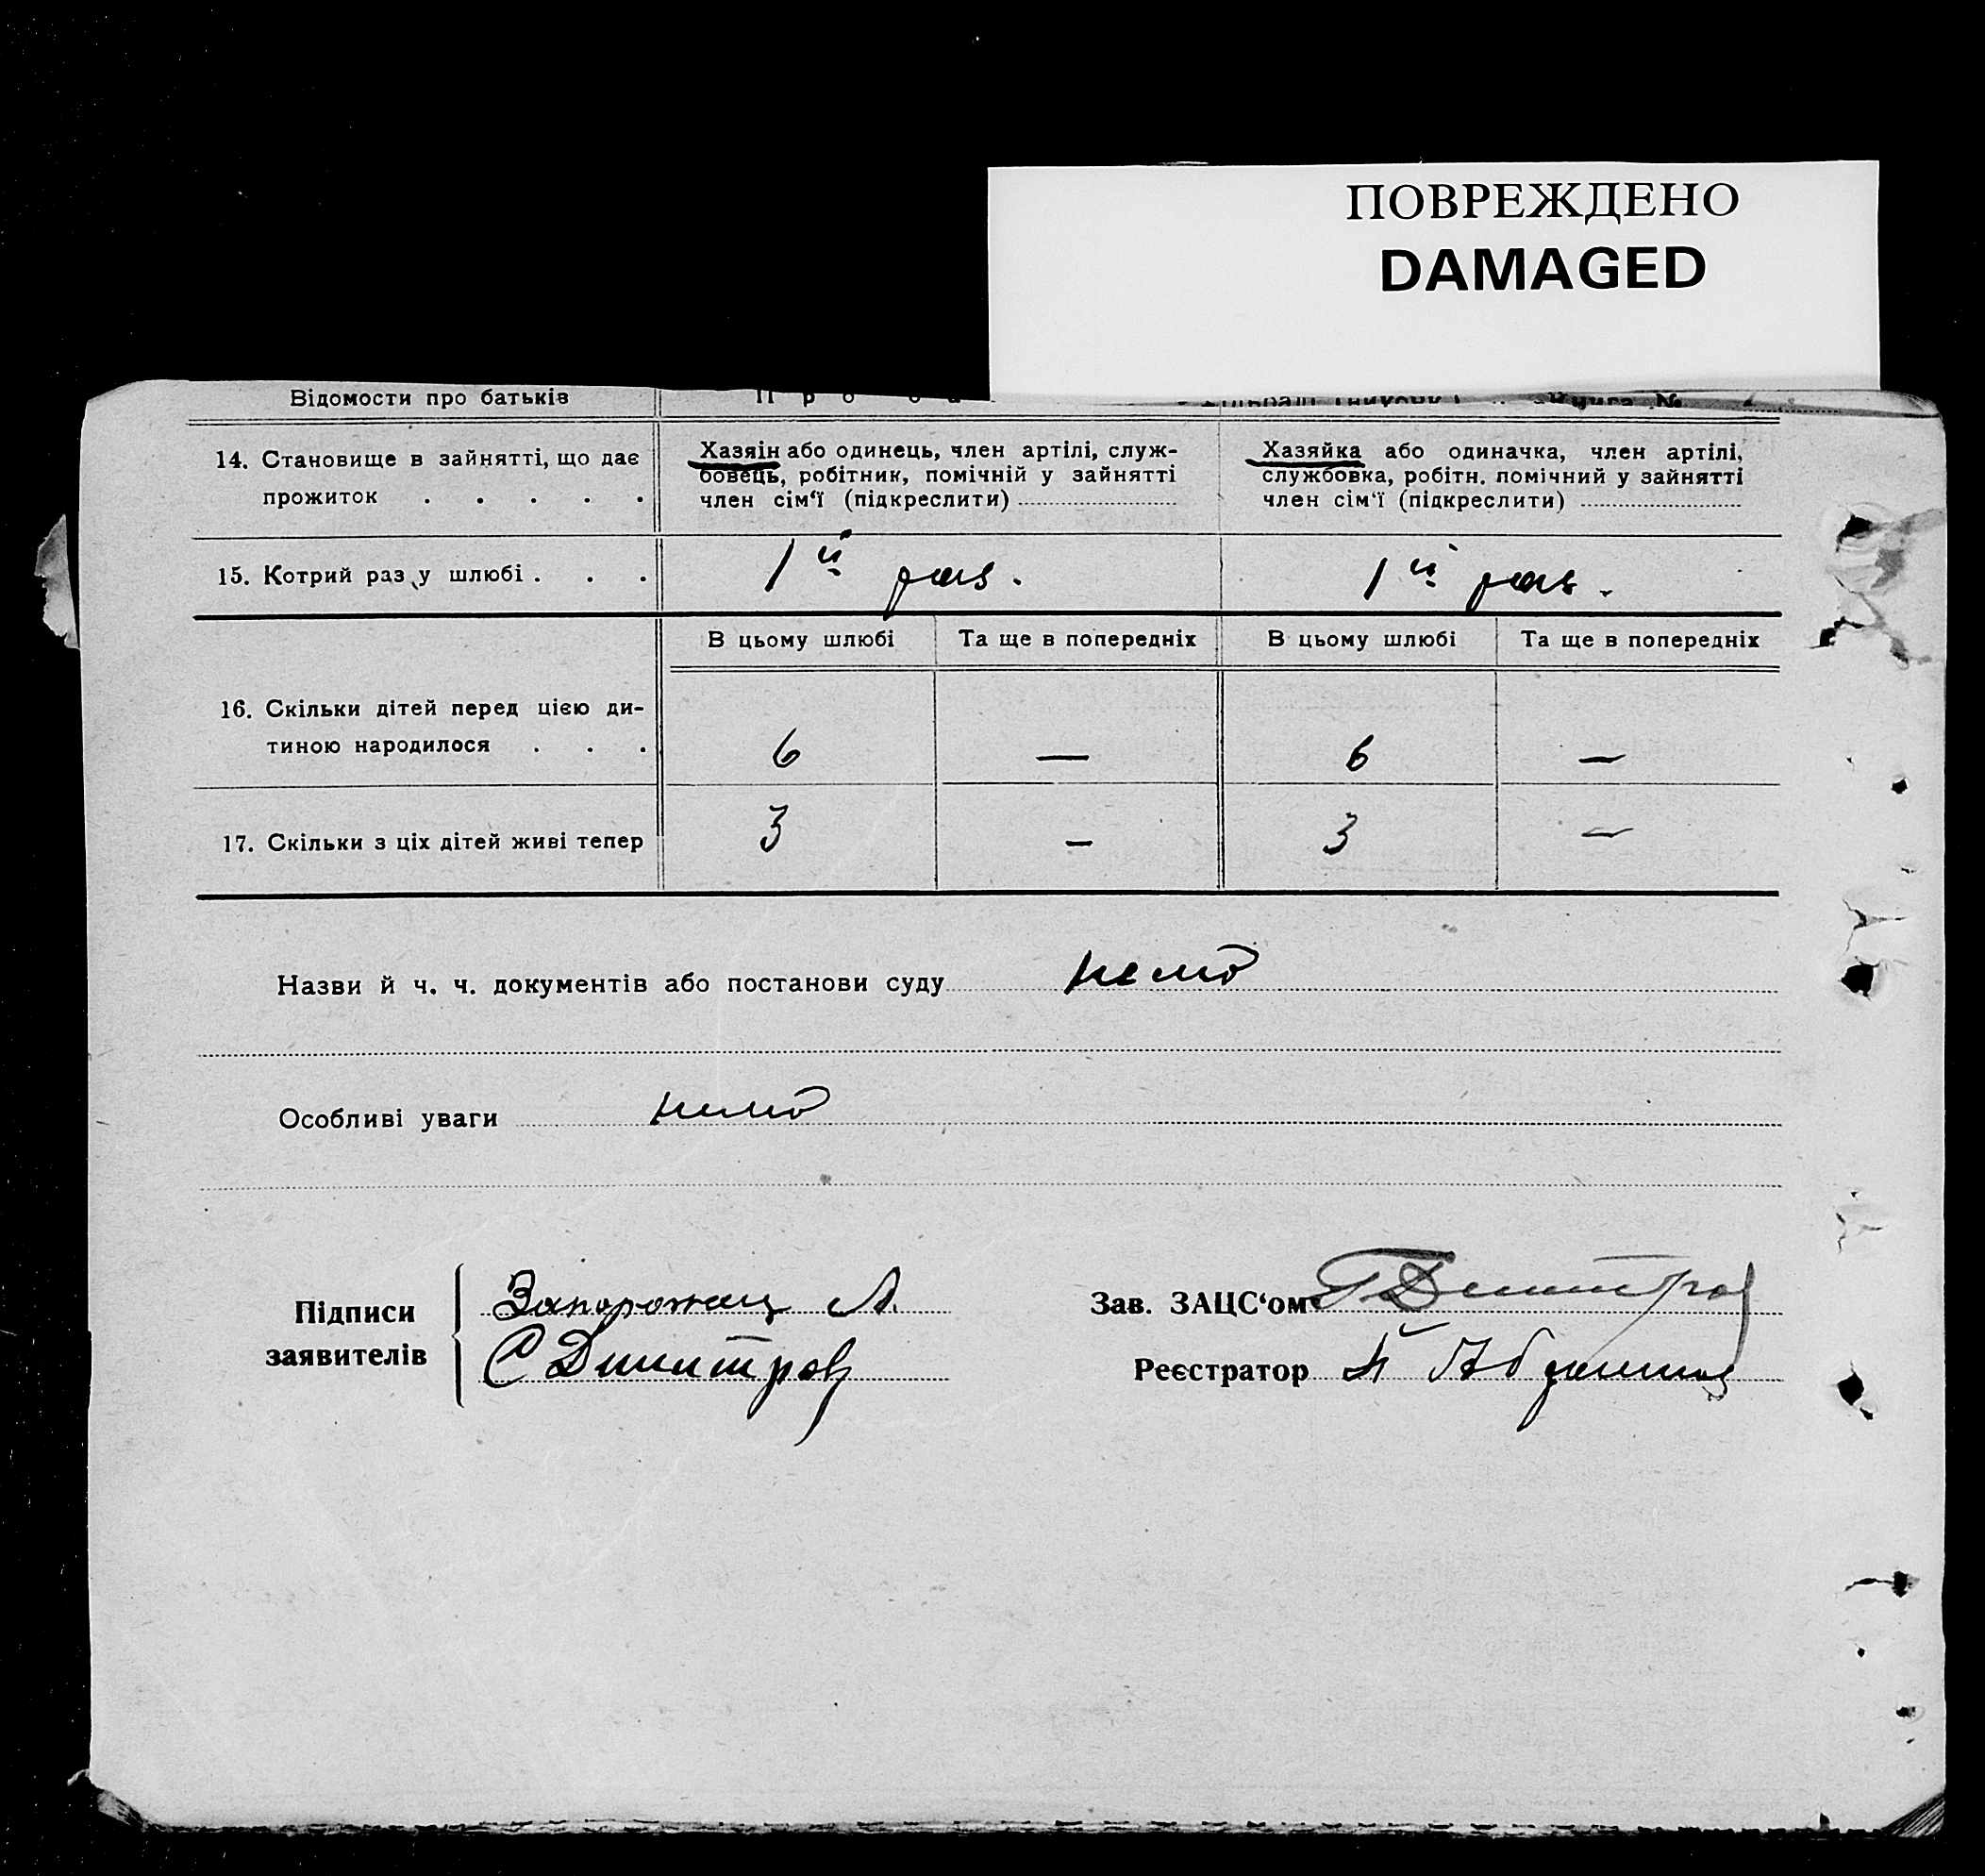 ПОВРЕЖДЕНО
DAMAGED
Відомости про батьків
П р о
Книга №
14. Становище в зайнятті, що дає
прожиток . . . . .
Хазяін або одинець, член артілі, служ-
бовець, робітник, помічній у зайнятті
член сім‘ї (підкреслити)
Хазяйка або одиначка, член артілі,
службовка, робітн. помічний у зайнятті
член сім‘ї (підкреслити)
15. Котрий раз у шлюбі . . .
1й раз.
1й раз.
В цьому шлюбі
Та ще в попередніх
В цьому шлюбі
Та ще в попередніх
16. Скільки дітей перед цією ди-
тиною народилося . . .
6
—
6
—
17. Скільки з ціх дітей живі тепер
3
—
3
—
Назви й ч. ч. документів або постанови суду нема
Особливі уваги нема
Підписи
заявителів
Запорожец А.
С Димитров
Зав. ЗАЦС‘ом Г Димитров
Реєстратор